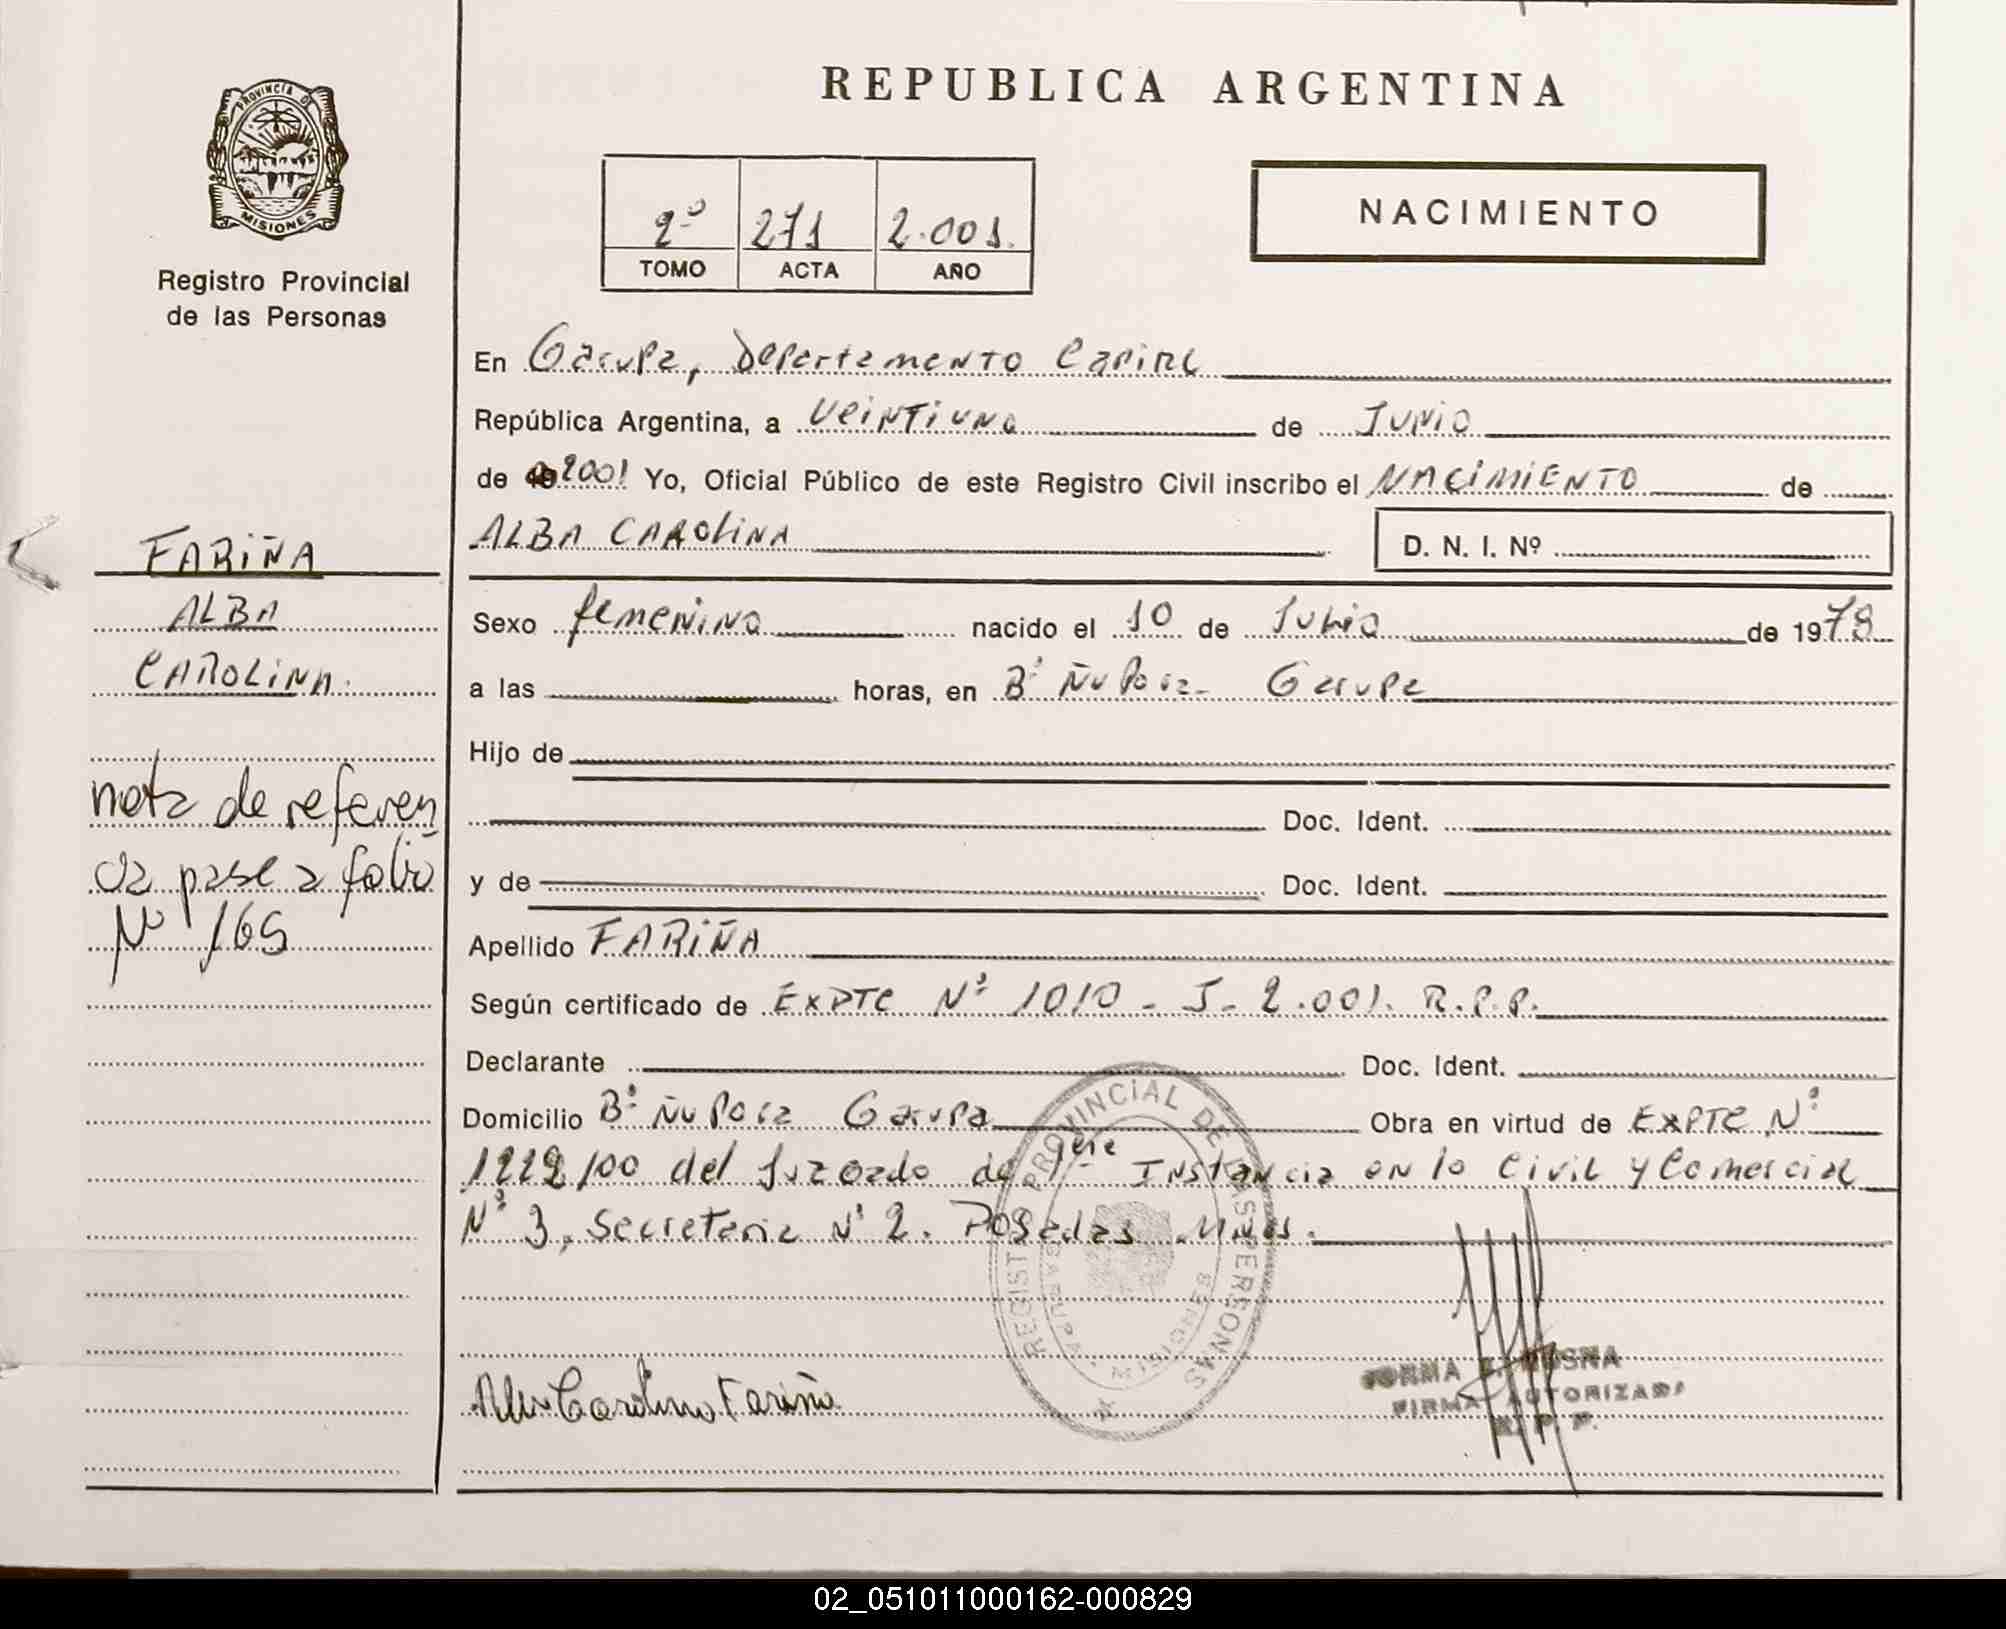 REPUBLICA ARGENTINA
PROVINCIA DE
MISIONES
Registro Provincial
de las Personas
2º 271 2.001.
TOMO ACTA AÑO
NACIMIENTO
En Garupa, Departamento Capital
República Argentina, a veintiuno de Junio
de 2001 Yo, Oficial Público de este Registro Civil inscribo el NACIMIENTO de
ALBA CAROLINA D. N. I. Nº
FARIÑA
ALBA
CAROLINA.
nota de referen
cia pase a folio
Nº 165
Sexo femenino nacido el 10 de Junio de 1978
a las horas, en Bº Ñu Pora - Garupa
Hijo de
Doc. Ident.
y de Doc. Ident.
Apellido FARIÑA
Según certificado de EXPTE Nº 1010 - J - 2.001. R.P.P.
Declarante Doc. Ident.
Domicilio Bº Ñu Pora Garupa Obra en virtud de EXPTE Nº
1222/00 del Juzgado de 1era Instancia en lo Civil y Comercial
Nº 3, Secretaria Nº 2. Posadas Mnes.
REGISTRO PROVINCIAL DE LAS PERSONAS
GARUPA - MISIONES
Alba Carolina Fariña
FIRMA AUTORIZADA
R. P. P.
02_051011000162-000829